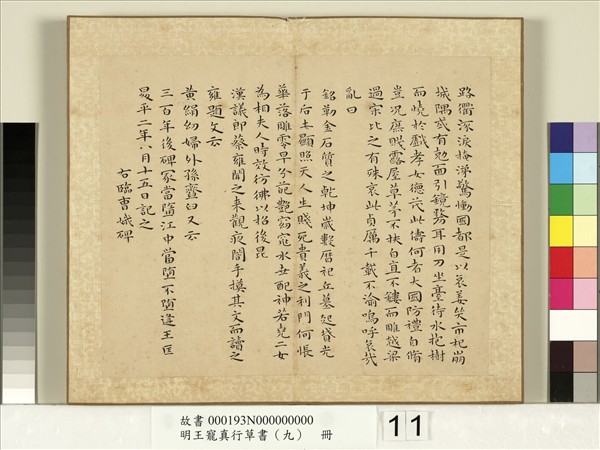 路衢流淚掩涕驚慟國都是以哀姜哭市杞崩
城隅或有剋面引鏡剺耳用刀坐臺待水抱樹
而燒於戲孝女德茂此儔何者大國防禮自脩
豈況庶賤露屋草茅不扶自直不鏤而雕越梁
過宋比之有殊哀此貞厲千載不渝嗚呼哀哉
亂曰
銘勒金石質之乾坤歲數曆祀丘墓起墳光
于后土顯照天人生賤死貴義之利門何悵
華落雕零早分葩艷窈窕永世配神若堯二女
為相夫人時效彷彿以招後昆
漢議郎蔡雍聞之來觀夜闇手摸其文而讀之
雍題文云
黃絹幼婦外孫齏臼又云
三百年後碑冢當墮江中當墮不墮逢王叵
昇平二年八月十五日記之
右臨曹娥碑
故書000193N000000000
明王寵真行草書(九) 冊
11